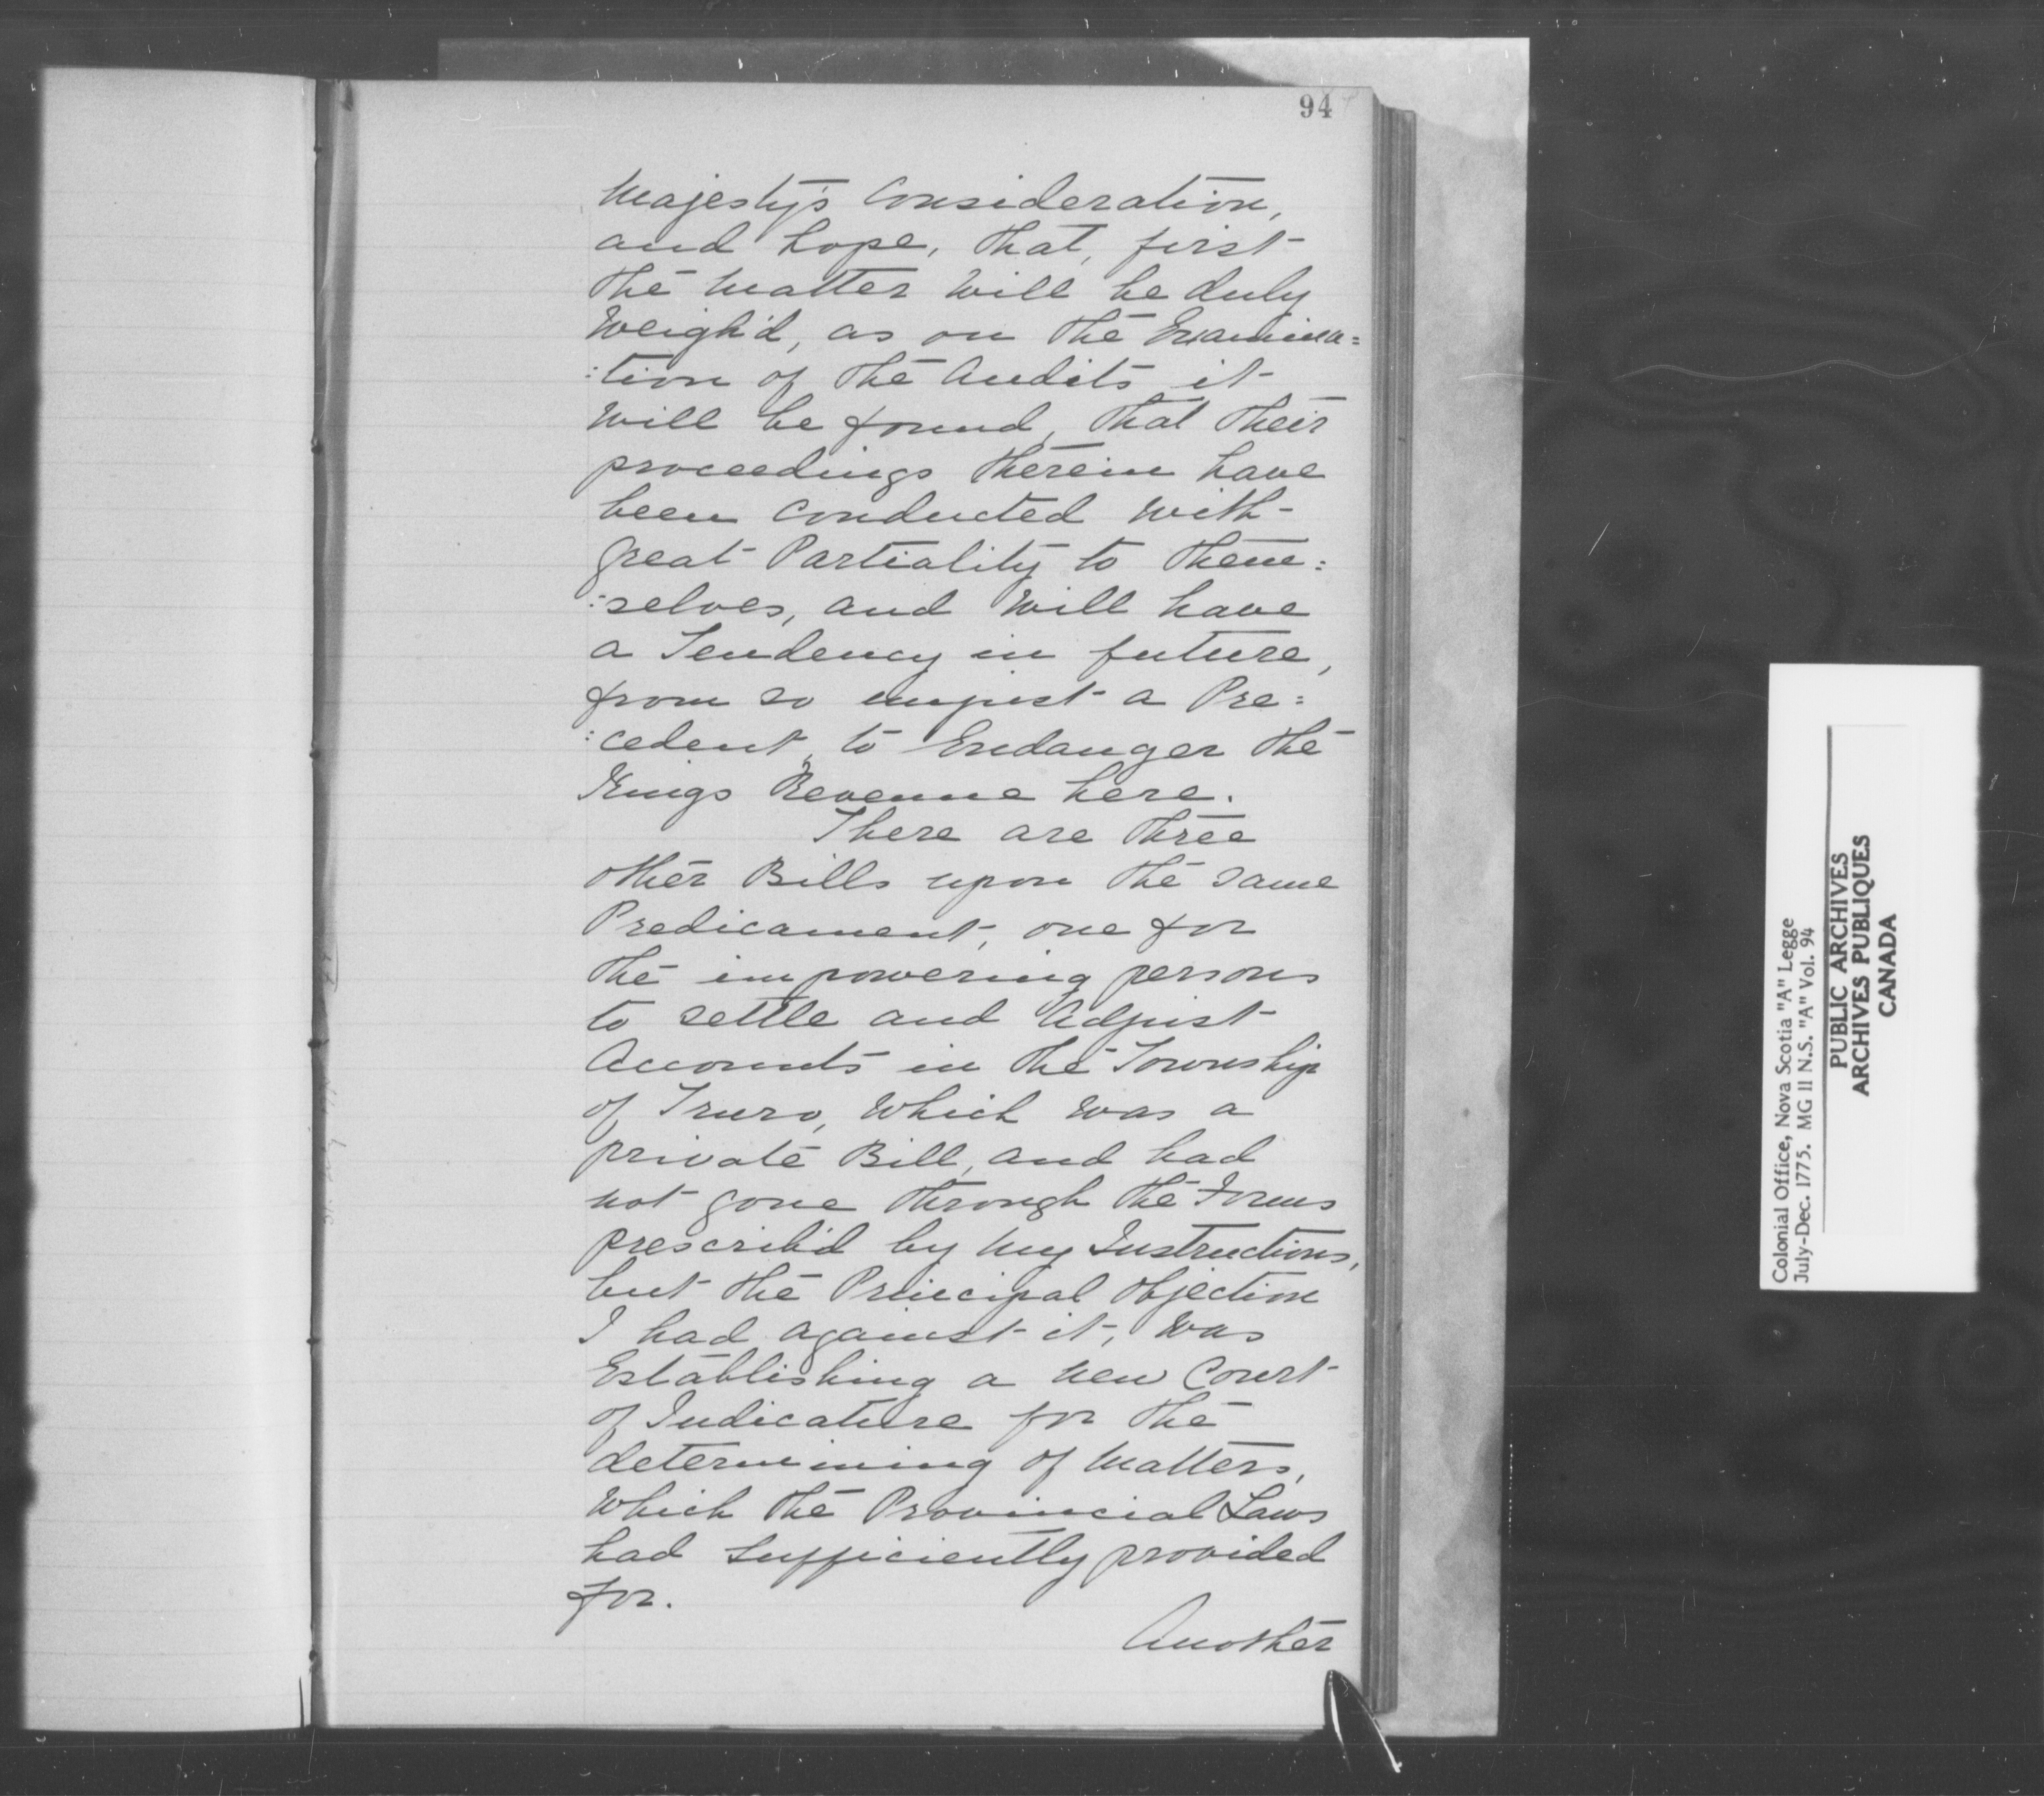 94
Majesty's Consideration,
and hope, that, first
the Matter Will be duly
Weigh'd, as on the Examina=
:tion of the Audits it
Will be found, that their
proceedings therein have
been Conducted With
great Partiality to them:
:selves, and Will have
a Tendency in future,
from so unjust a Pre:
:cedent, to Endanger the
Kings Revenue here.
There are three
other Bills upon the same
Predicament, one for
the impowering persons
to settle and Adjust
Accounts in the Township
of Truro, Which Was a
private Bill, and had
not gone through the Forms
prescrib'd by My Instructions,
but the Principal Objection
I had against it, Was
Establishing a New Court
of Judicature for the
determining of Matters,
Which the Provincial Laws
had sufficiently provided
for.
Another
Colonial Office, Nova Scotia "A" Legge
July-Dec. 1775. MG II N.S. "A" Vol. 94
PUBLIC ARCHIVES
ARCHIVES PUBLIQUES
CANADA